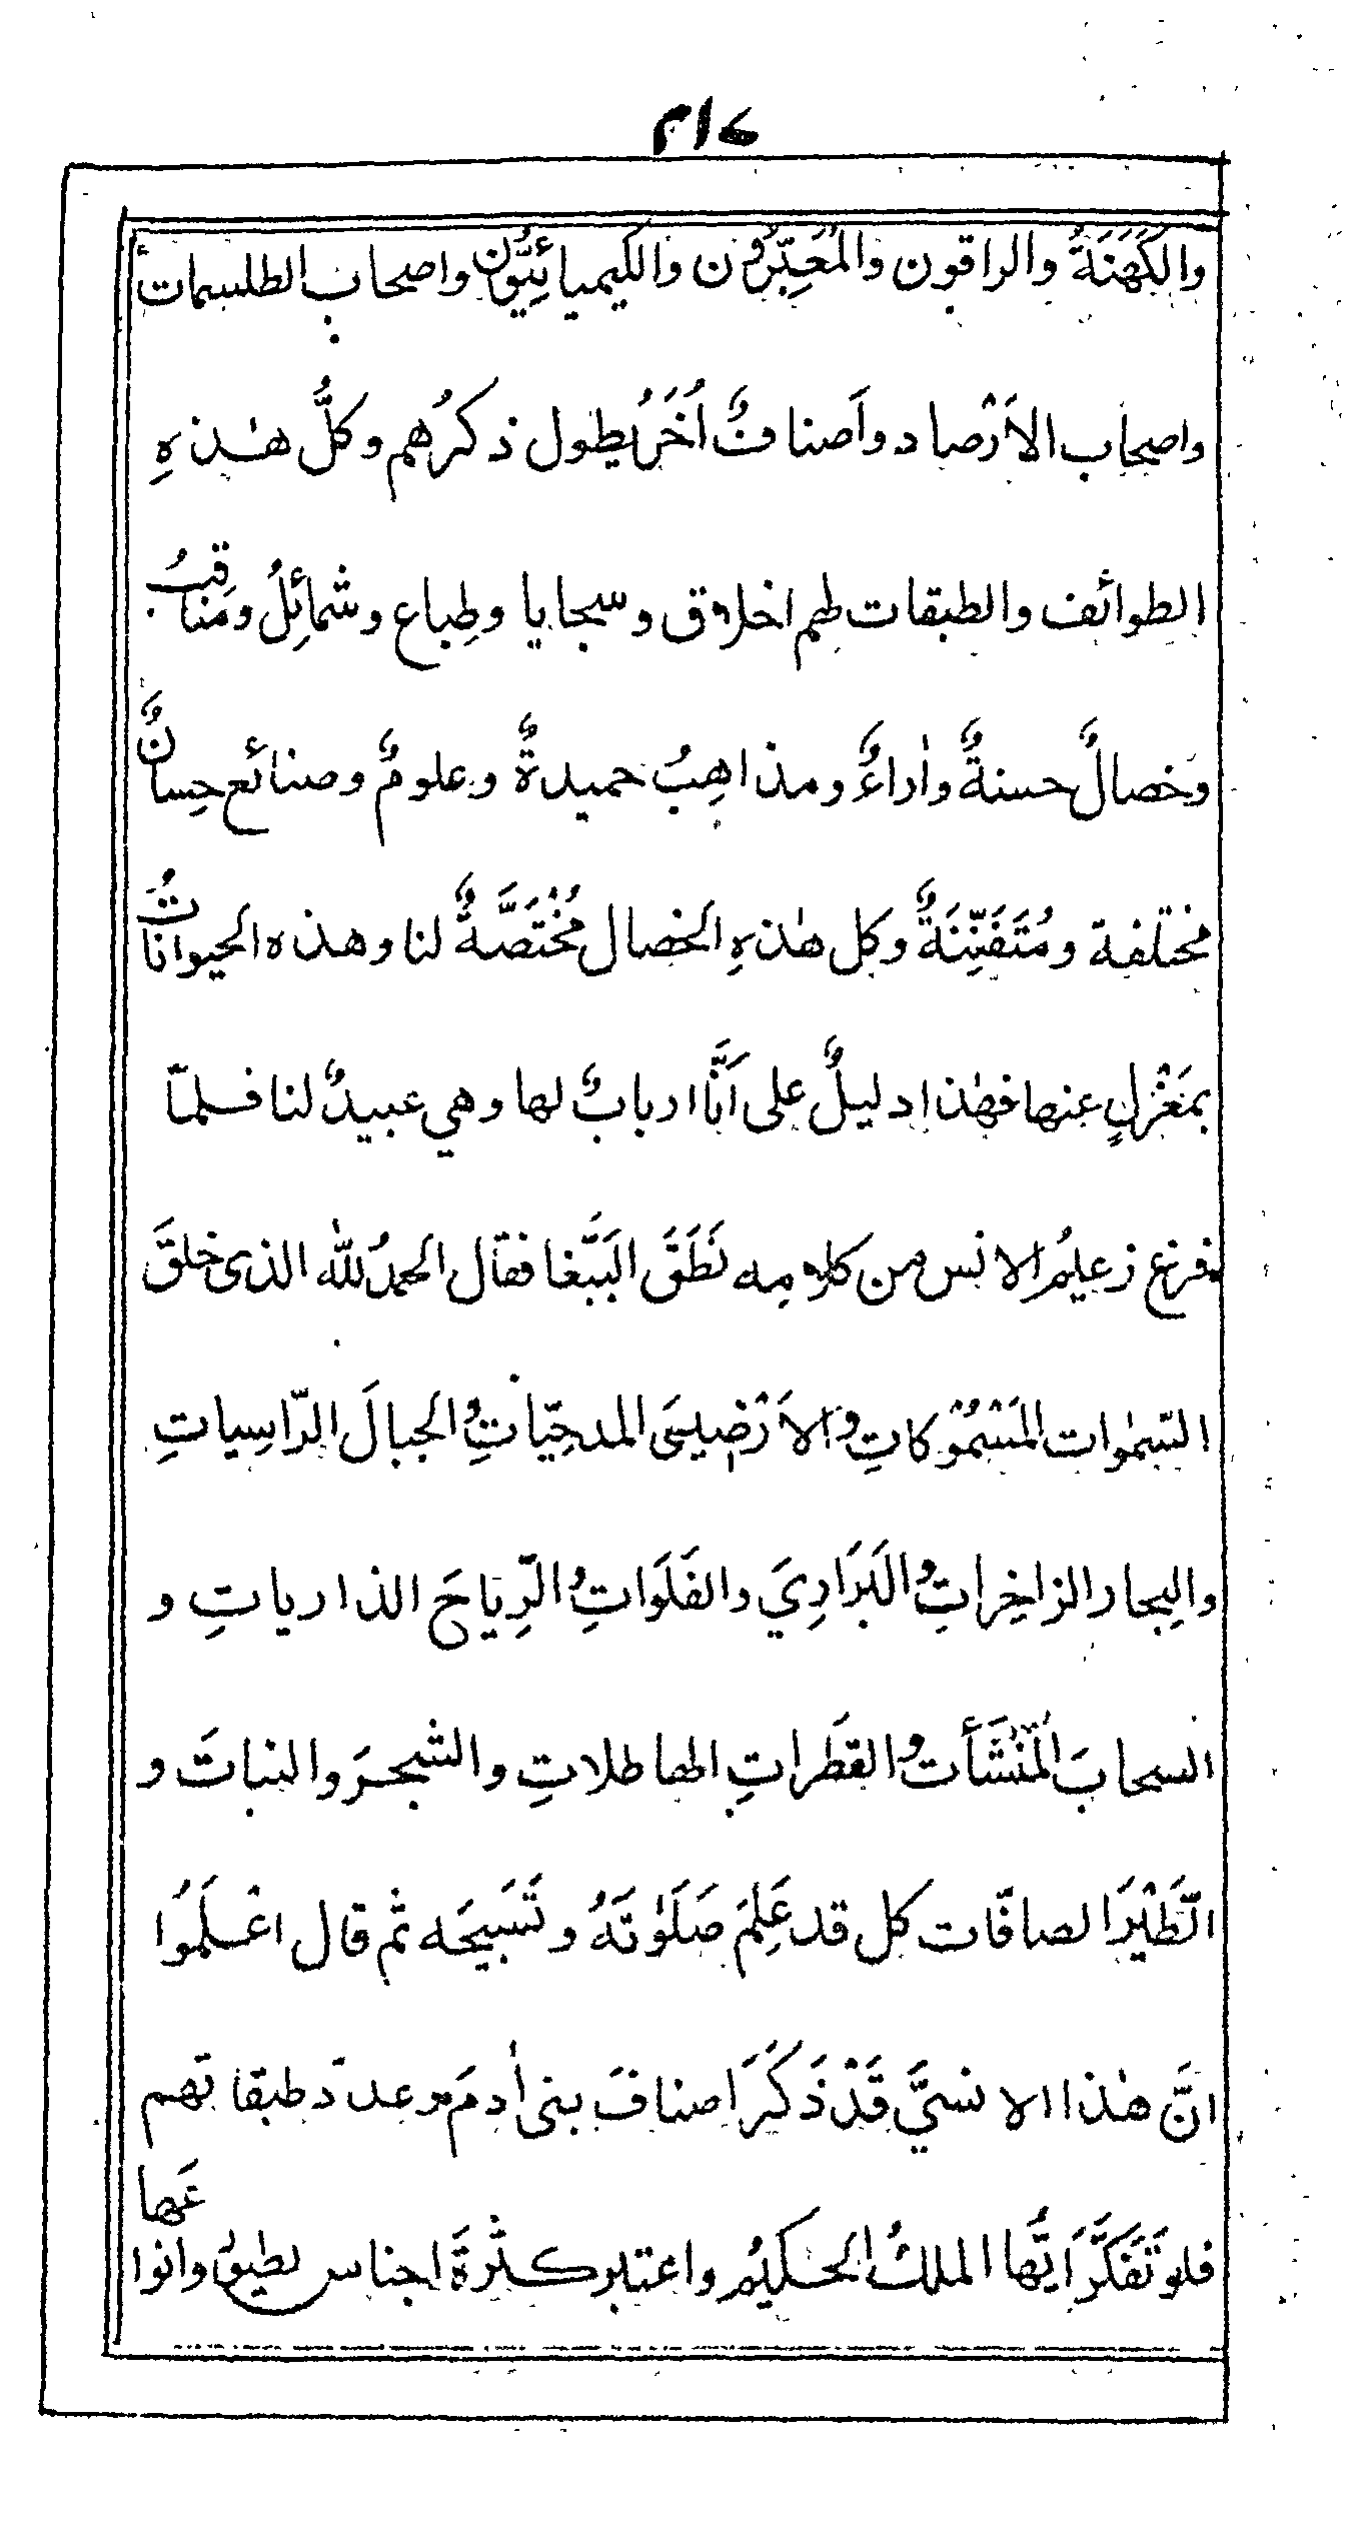 ٣١٤
والكَهَنَةُ والراقون والمُعَبِّرُون والكيميائيّون واصحاب الطلسمات
واصحاب الاَرْصاد واَصنافٌ اُخَرُ يطول ذكرُهم وكلُّ هٰذهِ
الطوائف والطبقات لهم اخلاق وسجايا وطِباع وشمائِلُ ومَناقبُ
وَخصالٌ حسنةٌ واٰراءٌ ومذاهِبُ حميدةٌ وعلومٌ وصنائع حِسانٌ
مختلفة ومُتَفَنِّنَةٌ وكل هٰذهِ الخصال مُخْتَصَّةٌ لنا وهذه الحيواناتُ
بمَعْزلٍ عنها فهٰذا دليلٌ على اَنَّا اربابٌ لها وهي عبيدٌ لنا فلمّا
فرغ زعيمُ الانس من كلامه نَطَقَ البَبَّغا فقال الحمدُ للّٰه الذى خلقَ
السّمٰوات المَسْمُوْكاتِ والاَرْضيىَ المدحِيّاتِ والجبالَ الرّاسِياتِ
والبحار الزاخِراتِ والبَرَارِيَ والفَلَوَاتِ والرِّيَاحَ الذارياتِ و
السحابَ المُنْشَأت والقطَراتِ الهاطلاتِ والشجرَ والنباتَ و
الطَّيْرَ الصافّات كل قد عَلِمَ صَلَوٰتَهُ وتَسبيحَه ثم قال اعْلَمُوا
انَّ هٰذا الانسيَّ قَدْ ذَكَرَ اصنافَ بنى اٰدمَ وعدّد طبقاتهم
فلو تَفَكَّرَ اَيُّها الملكُ الحكيمُ واعتبر كثْرةَ اجناس لطيورُ وانواعَها